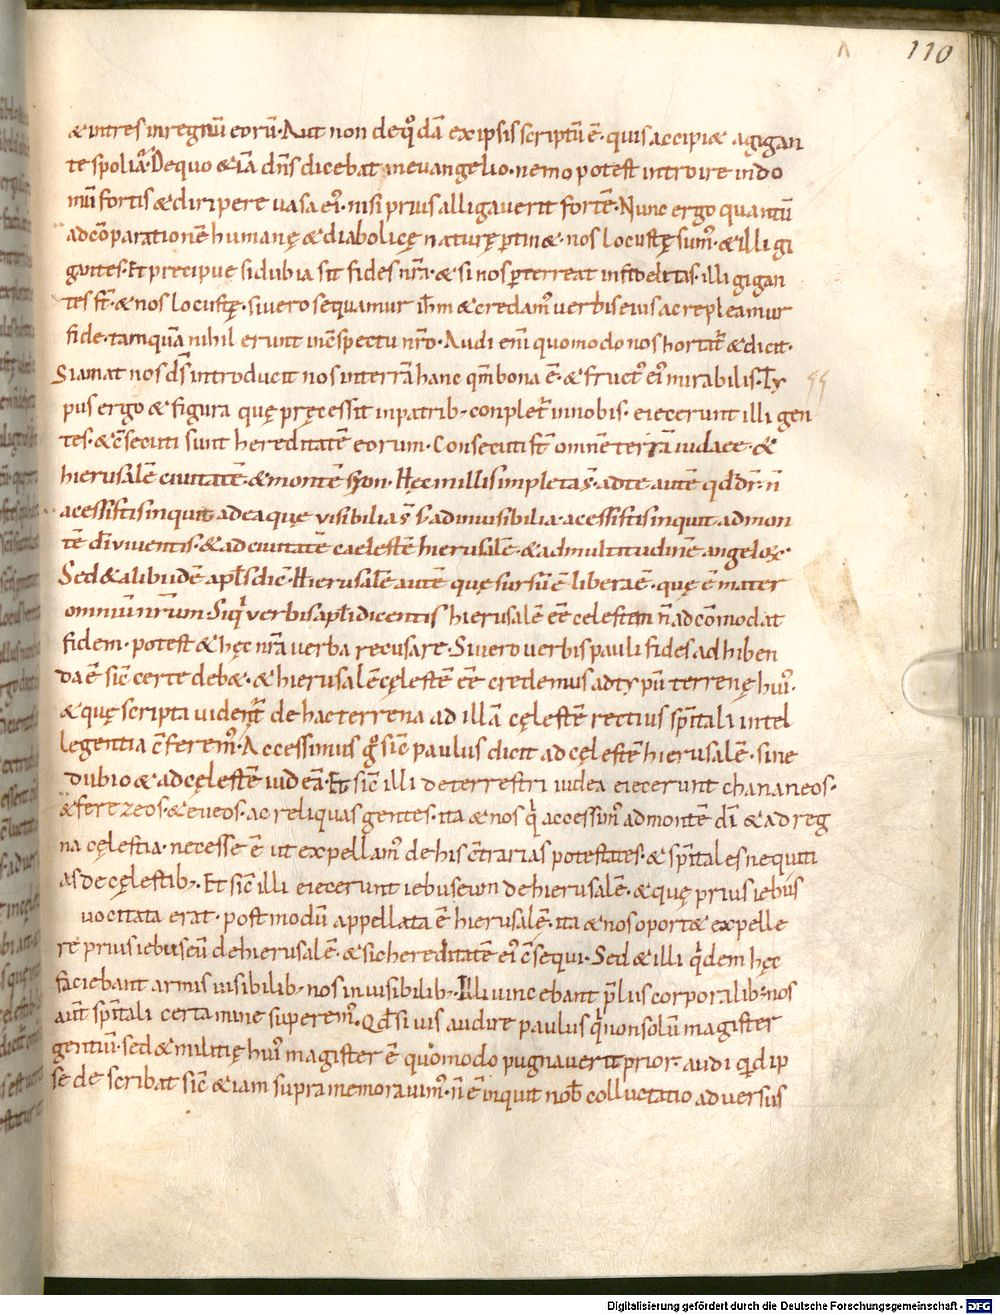 110
& intres in regnū eorū· Aut non de q̊dā ex ipsis scriptū ē· quis accipi& a gigan
te spolia· De quo & iā dn̄s dicebat in euangelio· nemo potest introire in do
mū fortis & diripere uasa ei᾿· nisi prius alligauerit fortē· Nunc ergo quantū
ad cōparationē humanę & diabolicę naturę ꝑtin&· nos locustę sum᾿· & illi gi
gantes· Et precipue si dubia sit fides nr̄a· & si nos ꝑterreat infidelitas· illi gigan
tes st̄· & nos locustę· si uero sequamur ih̄m & credam᾿ uerbis eius ac repleamur
fide· tamquā nihil erunt in c̄spectu nr̄o· Audi enī quomodo nos hortat᾿ & dicit·
Si amat nos dn̄s introducit nos in terrā hanc qm̄ bona ē· & fruct᾿ ei᾿ mirabilis· Ty
pus ergo & figura quę pręcessit in patrib; conplet᾿ in nobis· eiecerunt illi gen
tes· & c̄secuti sunt hereditatē eorum· Consecuti st̄ omnē terrā iudaee· &
hierusalē ciuitatē· & montē syon· Hęc in illis impleta s̄· ad te autē qd dr̄· n̄
acessistis inquit ad ea quę uisibilia s̄ s; ad inuisibilia· acessistis inquit ad mon
tē dī uiuentis· & ad ciuitatē caelestē hierusalē· & ad multitudinē angeloꝝ·
Sed & alibi idē apl̄s dic̄· Hierusalē autē quę sursū ē libera ē· quę ē mater
omniū nr̄um· Si q̊ uerbis apl̄i dicentis hierusalē ēē celestem n̄ adcōmodat
fidem· potest & hęc nr̄a uerba recusare· Si uero uerbis pauli fides adhiben
da ē sic̄ certe deb&· & hierusalē cęlestē ēē credemus ad typū terrenę hui᾿·
& quę scripta uident᾿ de hac terrena ad illā cęlestē rectius sp̄itali intel
legentia c̄ferem᾿· Accessimus g̊ sic̄ paulus dicit ad cęlestē hierusalē· sine
dubio & ad cęlestē iudeā· Et sic̄ illi de terrestri iudea eiecerunt chananeos·
& ferezeos· & eueos· ac reliquas gentes· ita & nos q̊ accessim᾿ ad montē dī & ad reg
na cęlestia· necesse ē ut expellam᾿ de his c̄trarias potestates· & sp̄itales nequiti
as de cęlestib;· Et sic̄ illi eiecerunt iebuseum de hierusalē· & quę prius iebus
uocitata erat· postmodū appellata ē hierusalē· ita & nos oport& expelle
re prius iebuseū de hierusalē· & sic hereditatē ei᾿ c̄sequi· Sed & illi q̊dem hęc
faciebant armis uisibilib; nos inuisibilib;· Illi uincebant p̄liis corporalib; nos
aūt sp̄itali certamine superem᾿· Qd si uis audire paulus q̊ non solū magister
gentiū· sed & militię hui᾿ magister ē quomodo pugnauerit prior· audi qd ip
se de se scribat sic̄ & iam supra memorauim᾿· n̄ ē inquit nob̄ colluctatio aduersus
Digitalisierung gefördert durch die Deutsche Forschungsgemeinschaft - DFG